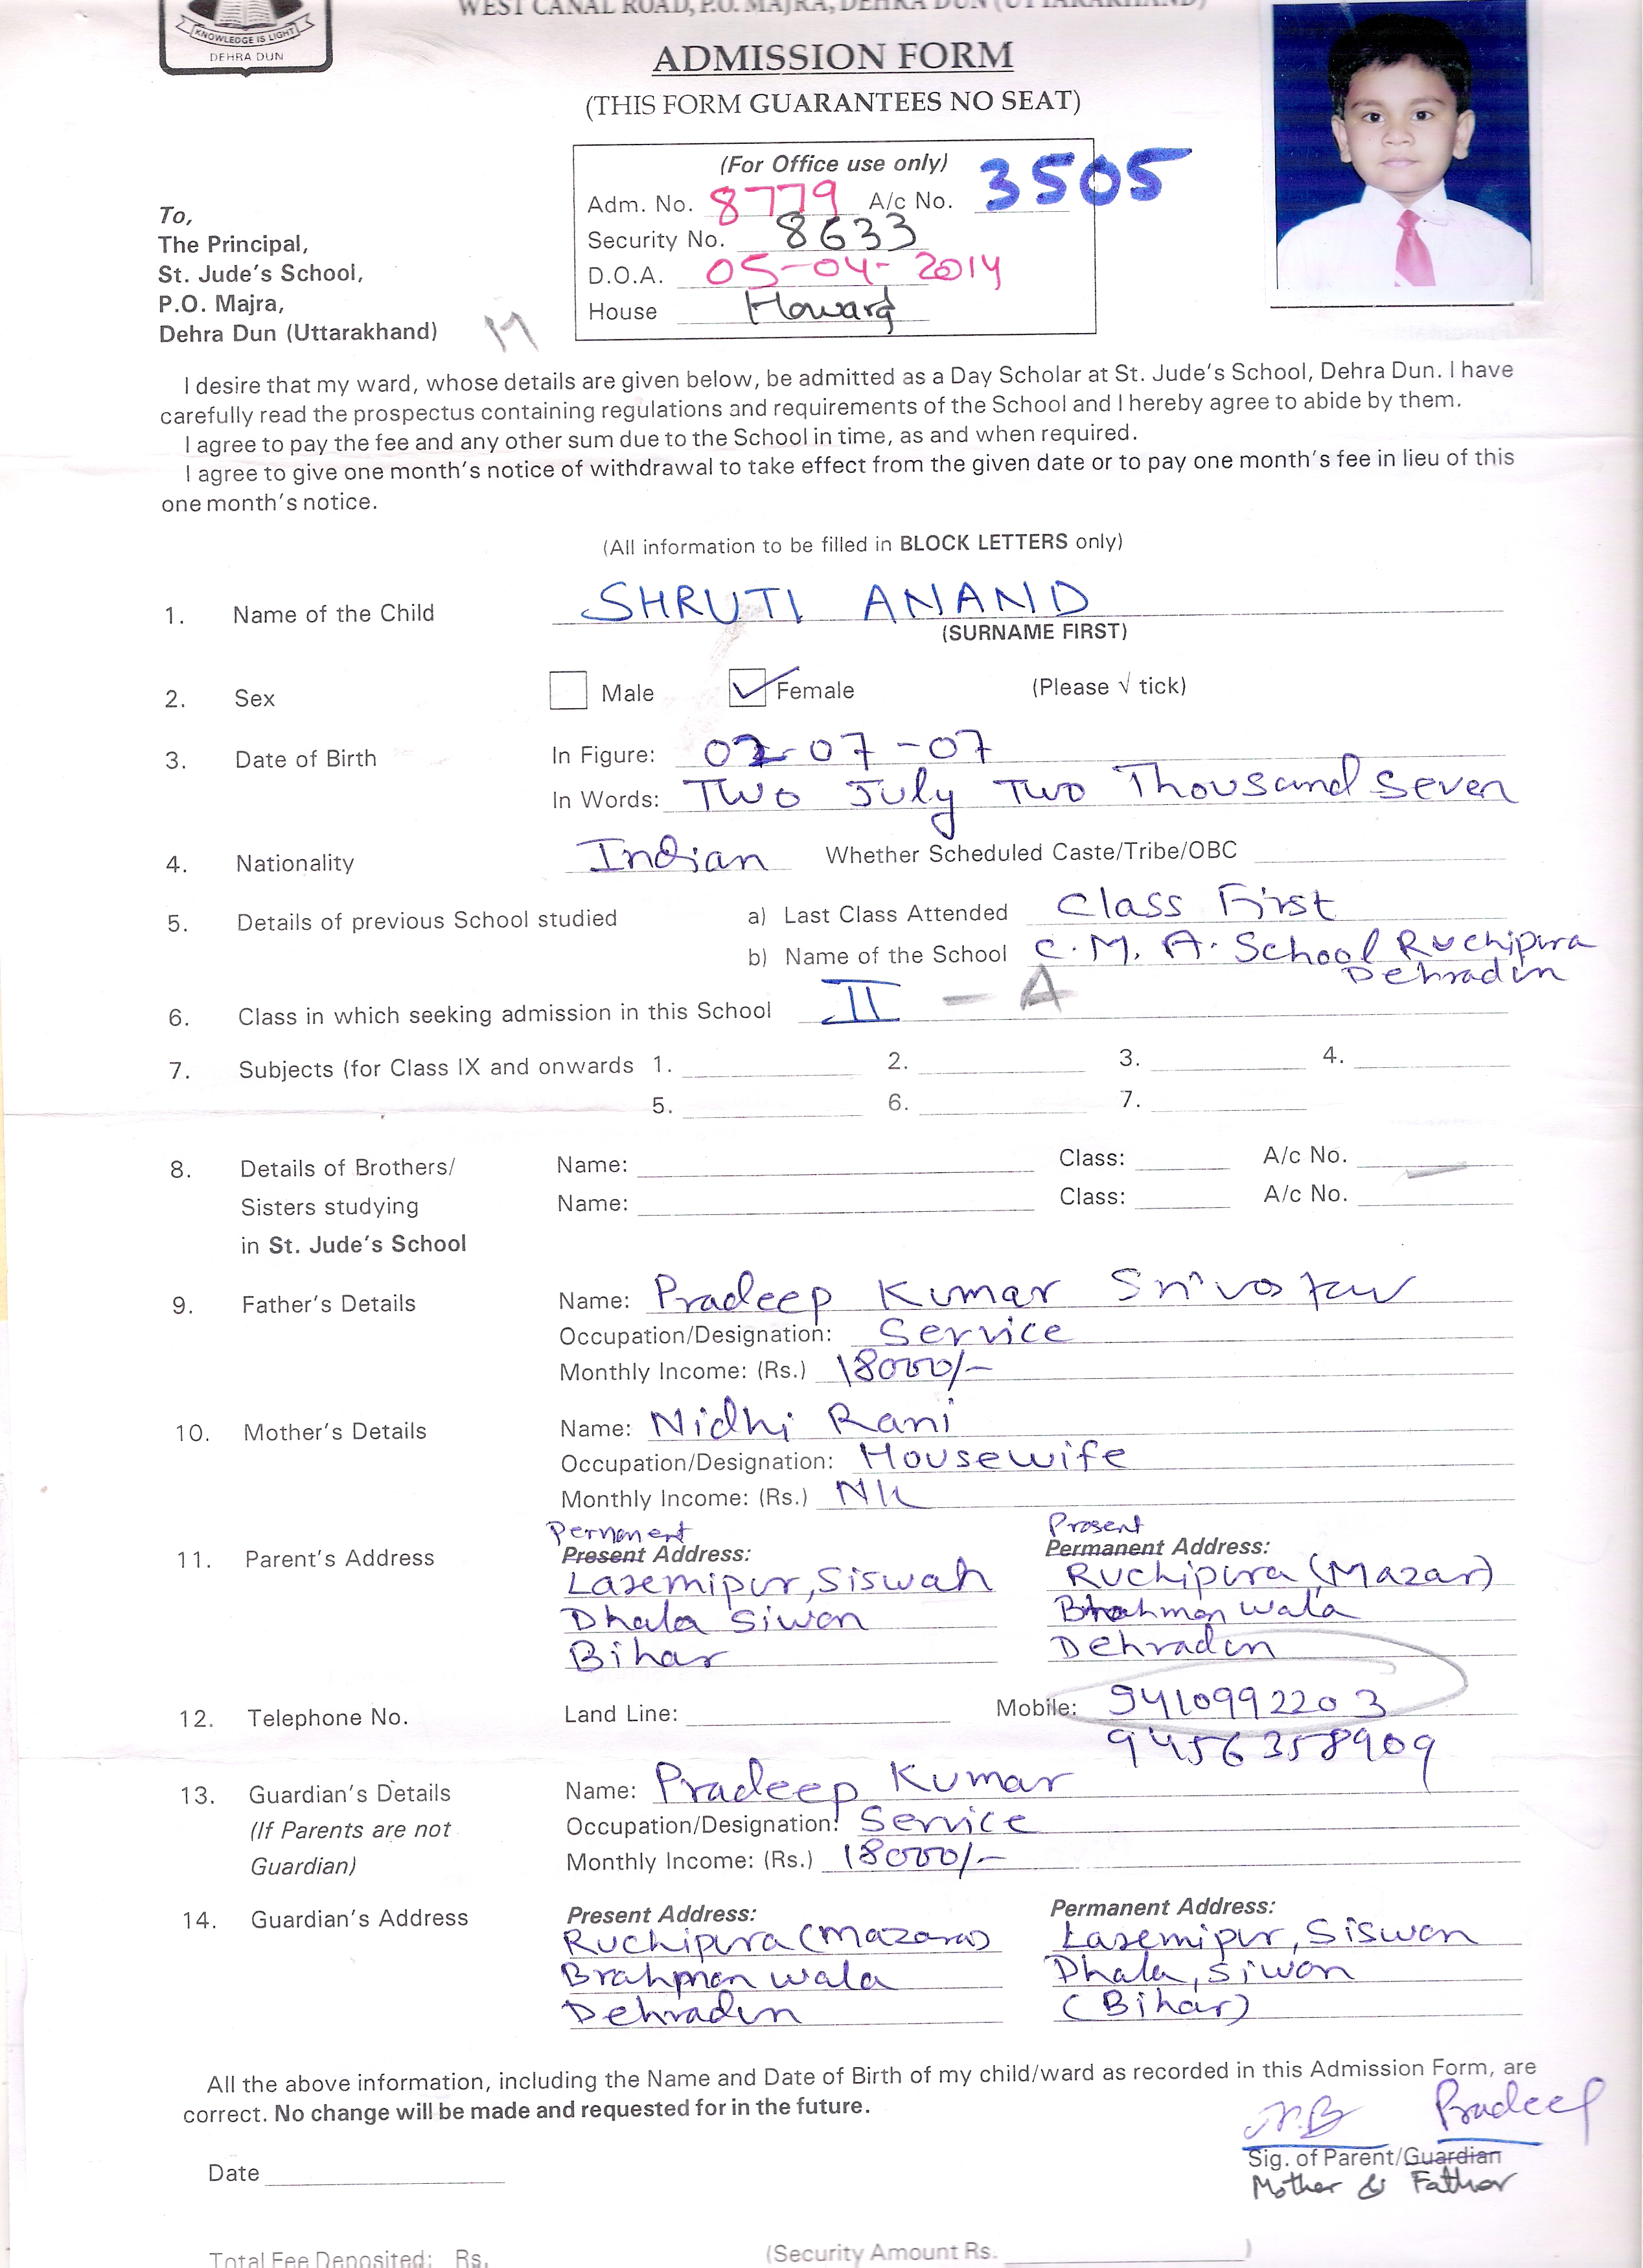 WEST CANAL ROAD, P.O. MAJRA, DEHRA DUN (UTTARAKHAND)
KNOWLEDGE IS LIGHT
DEHRA DUN
ADMISSION FORM
(THIS FORM GUARANTEES NO SEAT)
(For Office use only)
Adm. No. 8779 A/c No. 3505
Security No. 8633
D.O.A. 05-04-2014
House Howard
To,
The Principal,
St. Jude's School,
P.O. Majra,
Dehra Dun (Uttarakhand)
I desire that my ward, whose details are given below, be admitted as a Day Scholar at St. Jude's School, Dehra Dun. I have
carefully read the prospectus containing regulations and requirements of the School and I hereby agree to abide by them.
I agree to pay the fee and any other sum due to the School in time, as and when required.
I agree to give one month's notice of withdrawal to take effect from the given date or to pay one month's fee in lieu of this
one month's notice.
(All information to be filled in BLOCK LETTERS only)
1. Name of the Child SHRUTI ANAND
(SURNAME FIRST)
2. Sex Male Female (Please √ tick)
3. Date of Birth In Figure: 02-07-07
In Words: Two July Two Thousand Seven
4. Nationality Indian Whether Scheduled Caste/Tribe/OBC
5. Details of previous School studied a) Last Class Attended Class First
b) Name of the School C.M.A. School Ruchipura
Dehradun
6. Class in which seeking admission in this School II - A
7. Subjects (for Class IX and onwards 1. 2. 3. 4.
5. 6. 7.
8. Details of Brothers/ Name: Class: A/c No.
Sisters studying Name: Class: A/c No.
in St. Jude's School
9. Father's Details Name: Pradeep Kumar Srivastav
Occupation/Designation: Service
Monthly Income: (Rs.) 18000/-
10. Mother's Details Name: Nidhi Rani
Occupation/Designation: Housewife
Monthly Income: (Rs.) Nil
Permanent Present
11. Parent's Address Present Address: Permanent Address:
Lasemipur, Siswah Ruchipura (Mazar)
Dhala Siwan Brahman wala
Bihar Dehradun
12. Telephone No. Land Line: Mobile: 9410992203
9456358909
13. Guardian's Details Name: Pradeep Kumar
(If Parents are not Occupation/Designation: Service
Guardian) Monthly Income: (Rs.) 18000/-
14. Guardian's Address Present Address: Permanent Address:
Ruchipura (Mazara) Lasemipur, Siswan
Brahman wala Dhala, Siwan
Dehradun (Bihar)
All the above information, including the Name and Date of Birth of my child/ward as recorded in this Admission Form, are
correct. No change will be made and requested for in the future.
N.B Pradeep
Sig. of Parent/Guardian
Date
Mother & Father
Total Fee Deposited: Rs. (Security Amount Rs. )